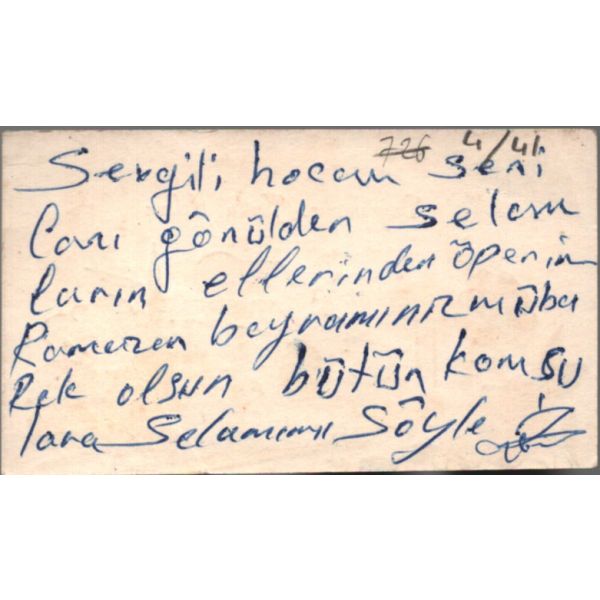 726 4/41
Sevgili hocam seni
Canı gönülden selam
larım ellerinden öperim
Ramazan bayramınız müba
Rek olsun bütün komsu
lara Selamımı Söyle